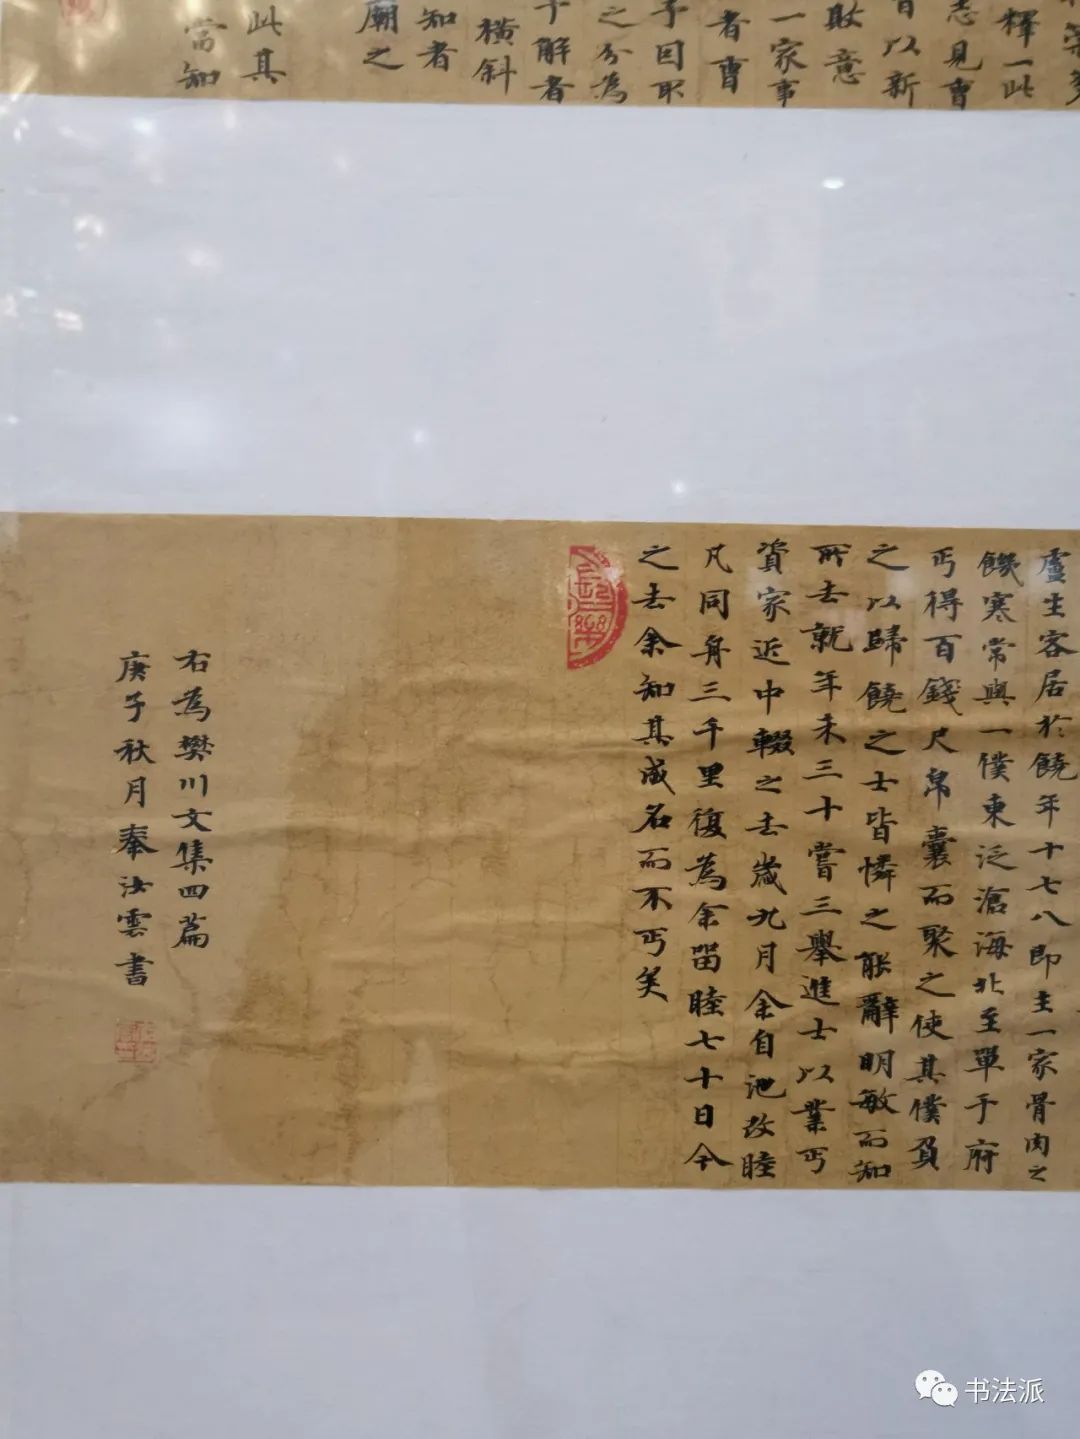 志見曹
釋一此
以新
敢意
一家事
者曹
予因取
之分為
解者
橫斜
知者
廟之
此其
當知
盧生客居於饒年十七八即主一家骨肉之
饑寒常與一僕東泛滄海北至單于府
丐得百錢尺帛囊而聚之使其僕負
之以歸饒之士皆憐之能辭明敏而知
所去就年未三十嘗三舉進士以業丐
資家近中輟之去歲九月余自池改睦
凡同舟三千里復為余留睦七十日今
之去余知其成名而不丐矣
長樂
右為樊川文集四篇
庚子秋月秦汝雲書
书法派